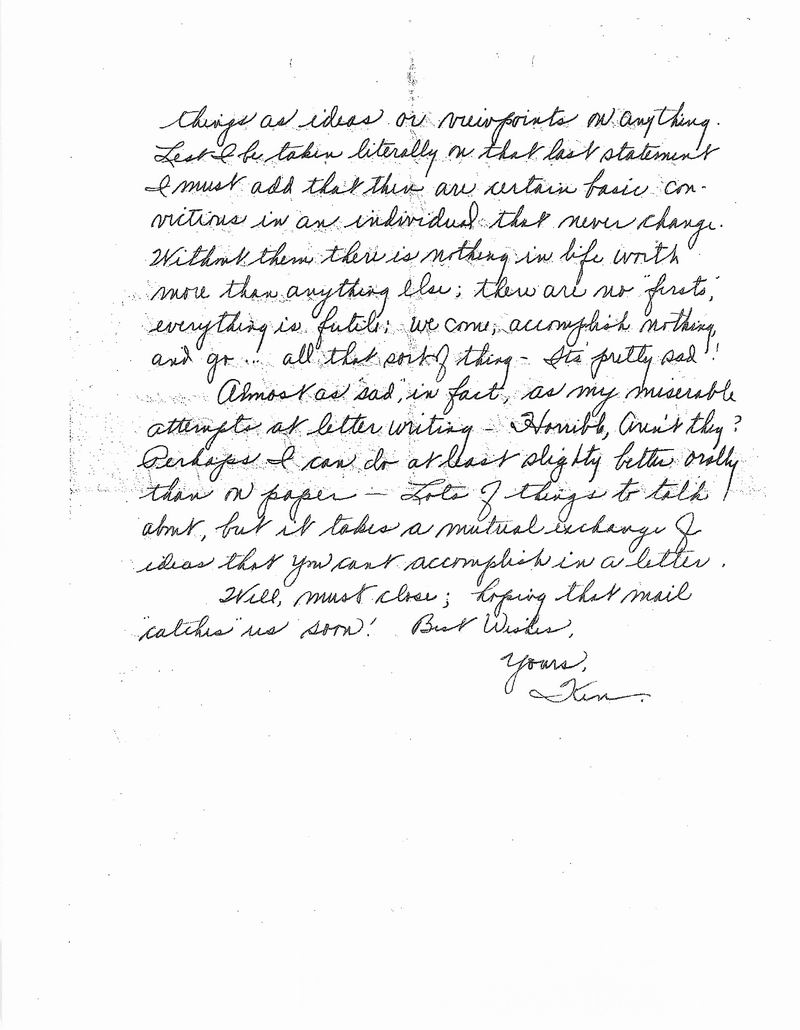 things as ideas or viewpoints on anything.
Lest I be taken literally on that last statement
I must add that there are certain basic con-
victions in an individual that never change.
Without them there is nothing in life worth
more than anything else; there are no "firsts",
everything is futile; we come, accomplish nothing,
and go ... all that sort of thing - Its pretty sad!
Almost as "sad", in fact, as my miserable
attempts at letter writing - Horrible, Aren't they?
Perhaps I can do at least slighty better orally
than on paper - Lots of things to talk
about, but it takes a mutual exchange of
ideas that you cant accomplish in a letter.
Well, must close; hoping that mail
"catches" us soon! Best Wishes,
Yours,
Ken.